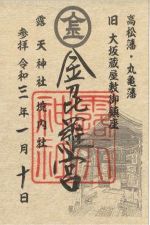 高松藩・丸亀藩
旧大坂蔵屋敷御鎮座
金
金毘羅宮
露天神社境内社
参拝令和三年一月十日